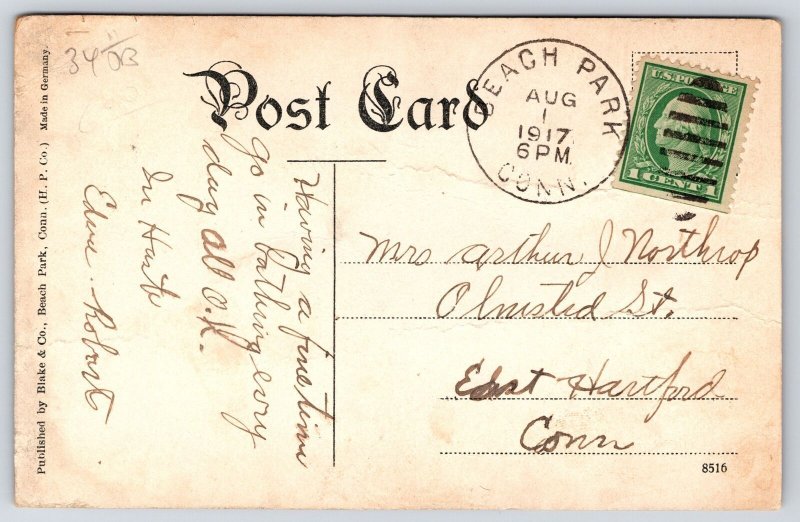 34 11 OB
Post Card
BEACH PARK
AUG
1
1917
6 PM
CONN.
U.S. POSTAGE
1 CENT 1
Having a fine time
go in bathing evry
day all O.K.
In Haste
Edna Robert
Mrs Arthur J Northrop
Olmsted St.
East Hartford
Conn
8516
Published by Blake & Co., Beach Park, Conn. (H. P. Co.) Made in Germany.